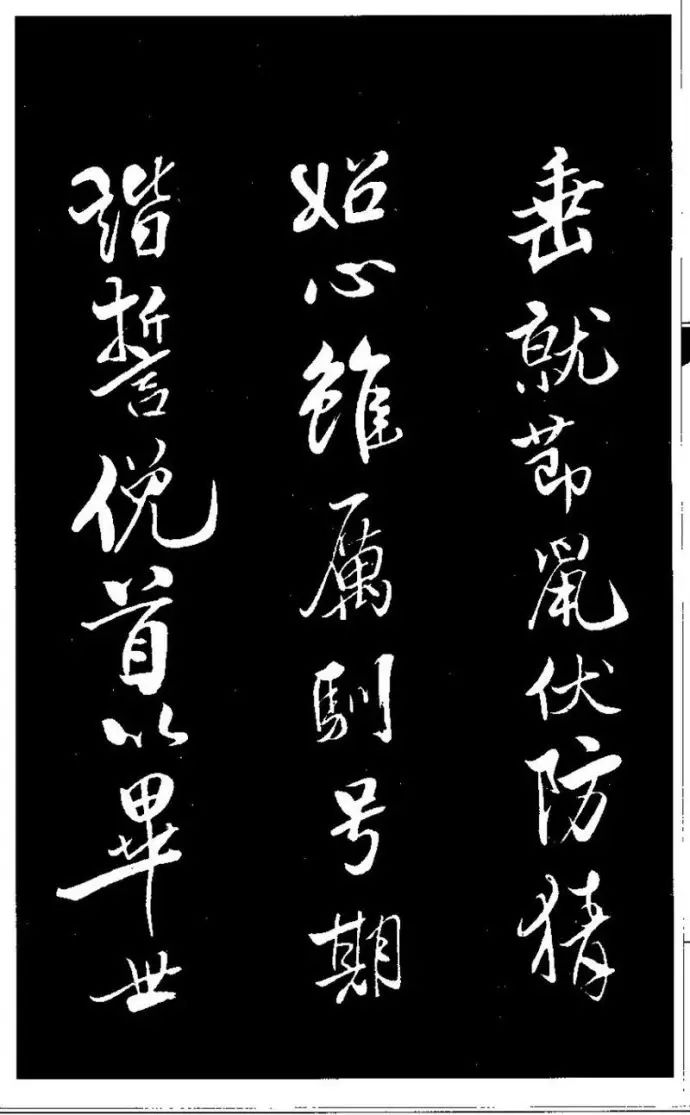 垂就節鼠伏防猜
妬心雖厲馴号期
諧誓俛首以畢世